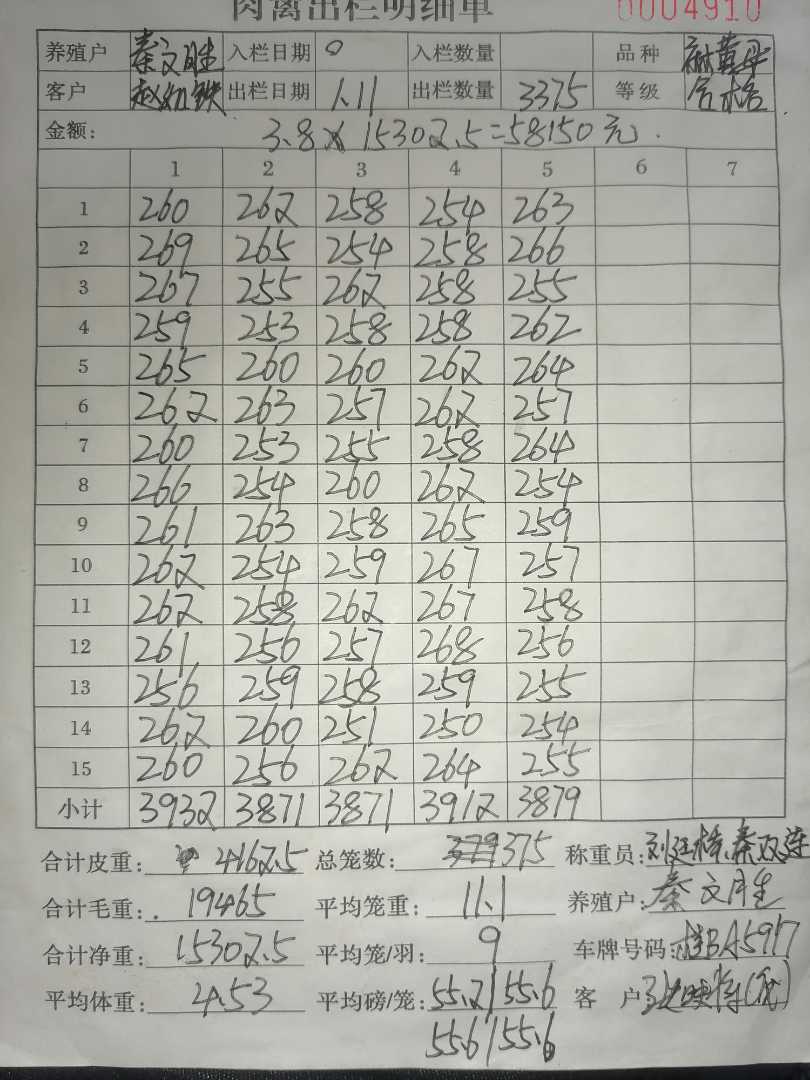 肉禽出栏明细单 0004910
养殖户 秦文胜 入栏日期 0 入栏数量 品种
客户 出栏日期 1.11 出栏数量 3375 等级 合格
金额: 3.8×15302.5=58150元.
1 2 3 4 5 6 7
1 260 262 258 254 263
2 269 265 254 258 266
3 267 255 262 258 255
4 259 253 258 258 262
5 265 260 260 262 264
6 262 263 257 262 257
7 260 253 255 258 264
8 266 254 260 262 254
9 261 263 258 265 259
10 262 254 259 267 257
11 262 258 262 267 258
12 261 256 257 268 256
13 256 259 258 259 255
14 262 260 251 250 254
15 260 256 262 264 255
小计 3932 3871 3871 3912 3879
合计皮重: 4162.5 总笼数: 375 称重员:
合计毛重: 19465 平均笼重: 11.1 养殖户: 秦文胜
合计净重: 15302.5 平均笼/羽: 9 车牌号码: 桂BA5917
平均体重: 4.53 平均磅/笼: 55.2/55.6 客户
55.6/55.6